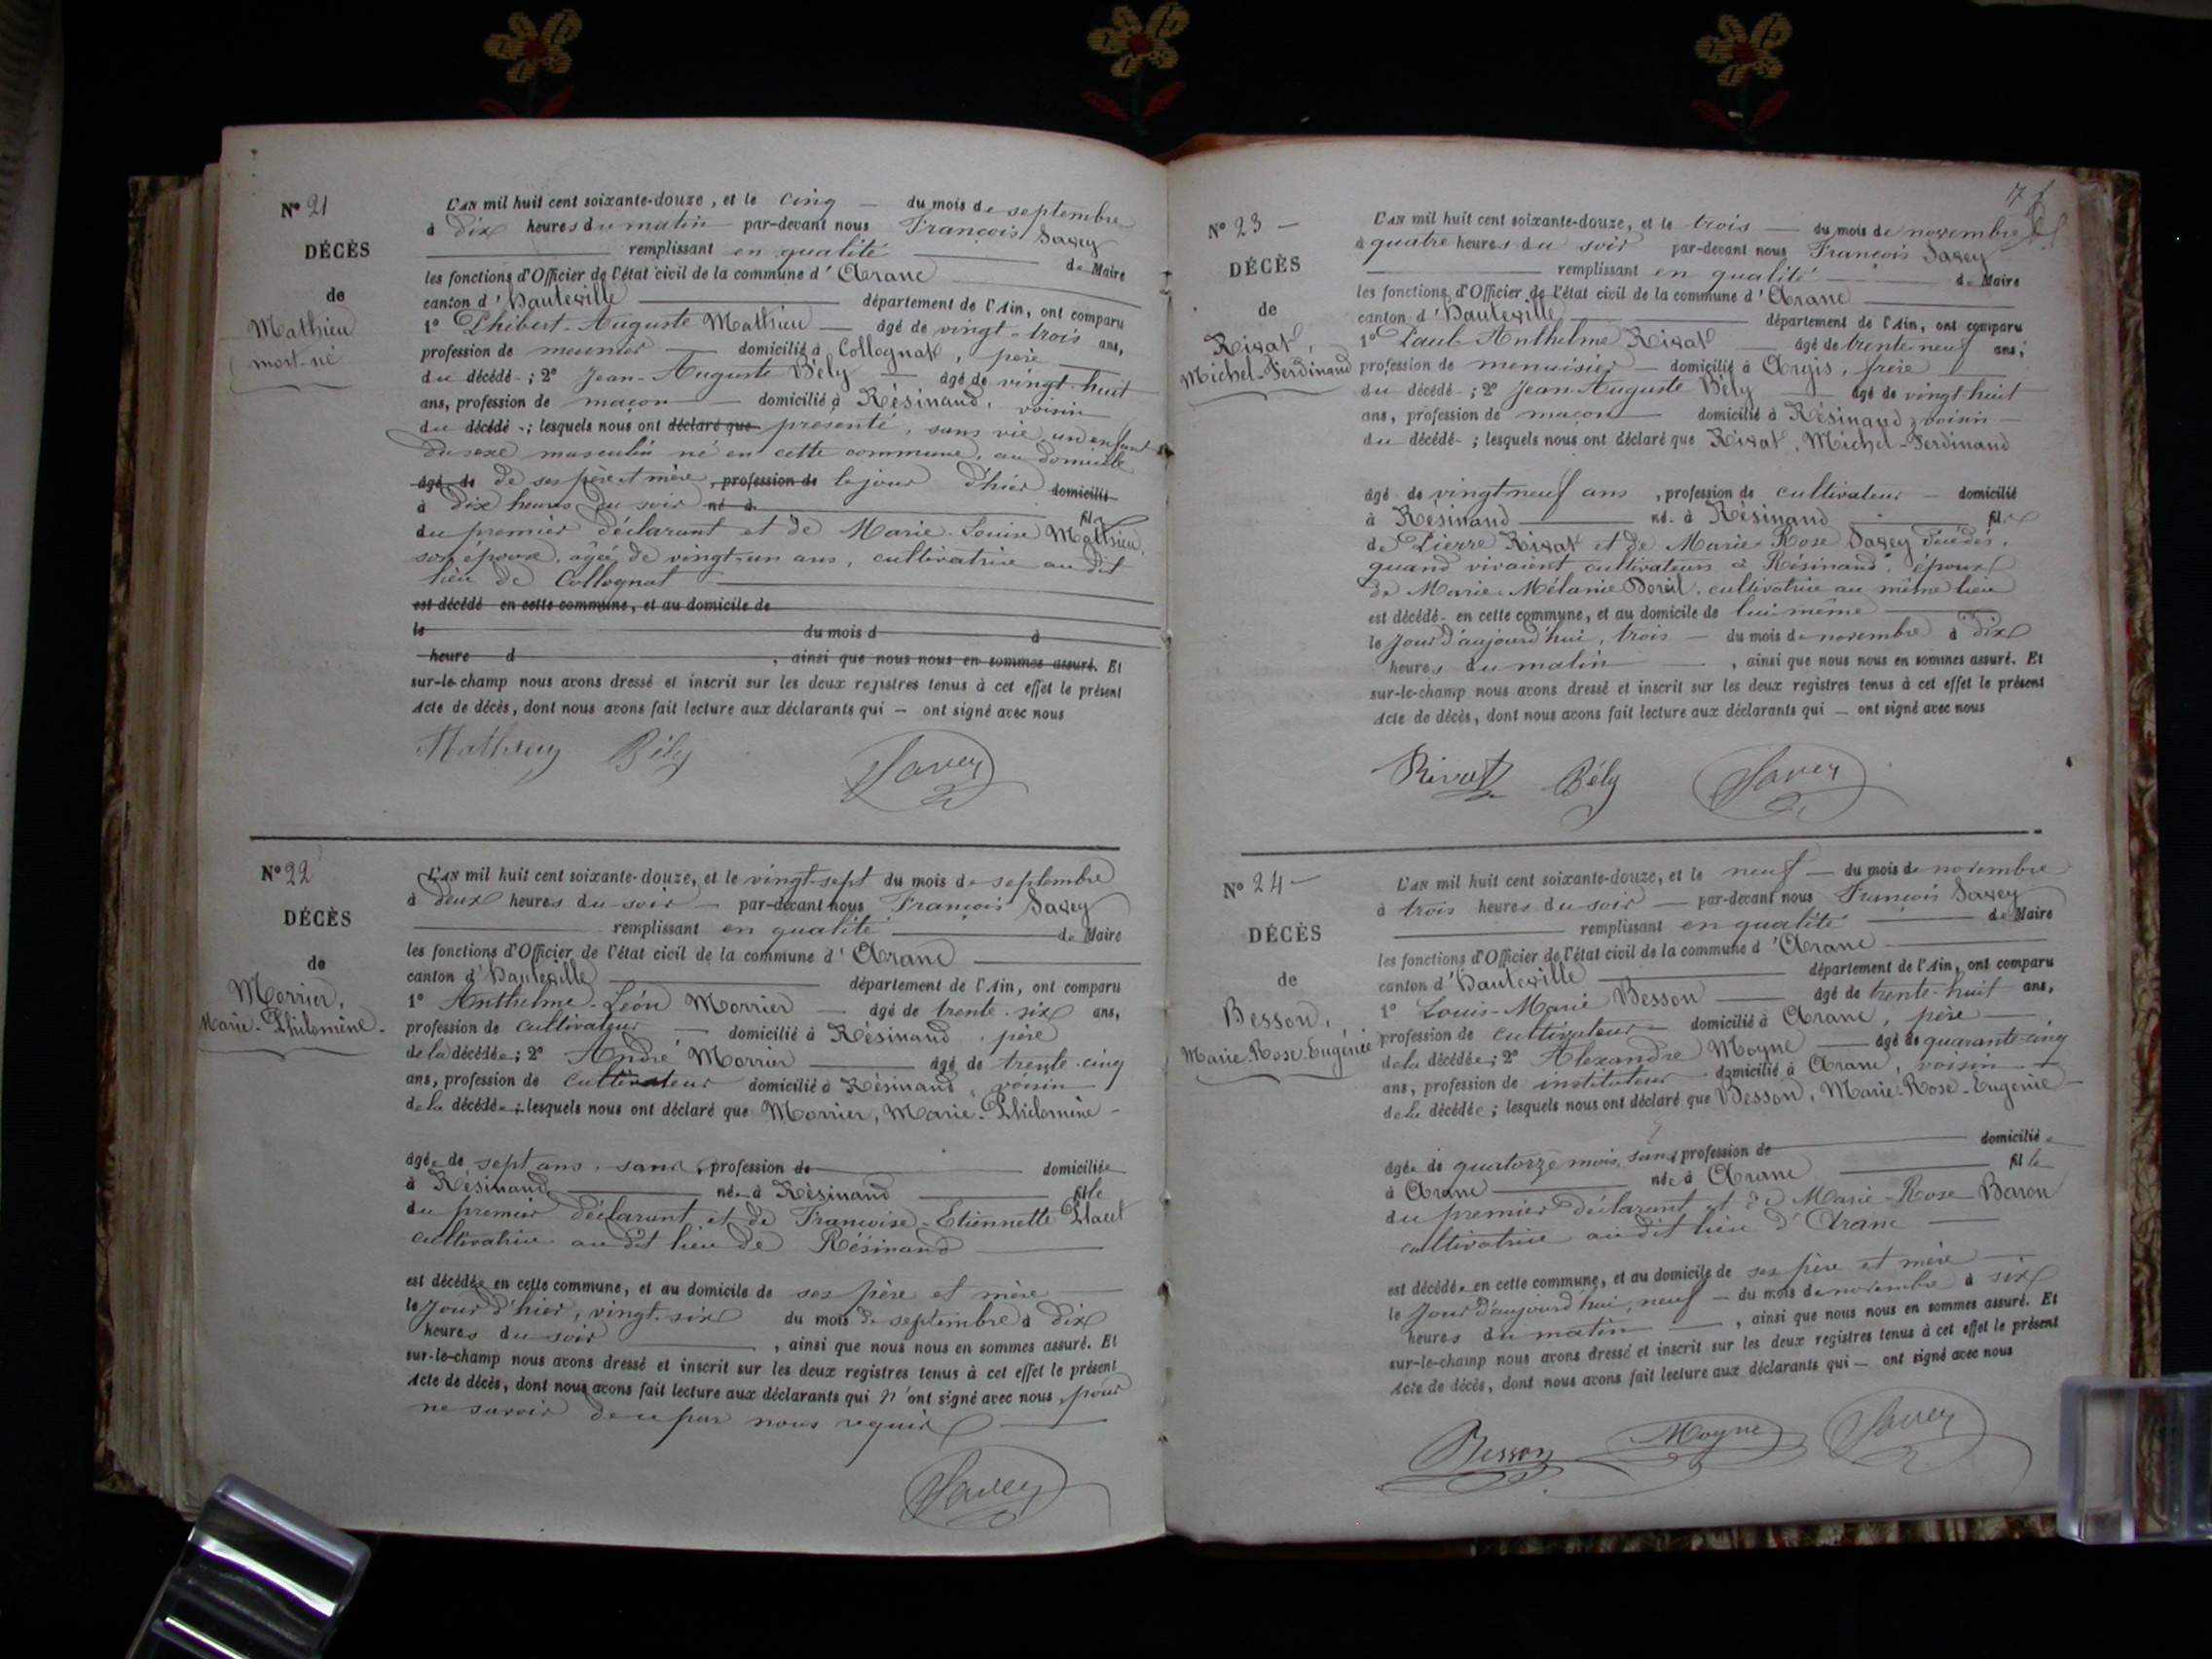 N° 21
DÉCÈS
de
Mathieu
mort-né
L'AN mil huit cent soixante-douze, et le cinq — du mois de septembre
à dix heures du matin par-devant nous François Savey
remplissant en qualité de Maire
les fonctions d'Officier de l'état civil de la commune d'Aranc
canton d'Hauteville département de l'Ain, ont comparu
1° Phibert-Auguste Mathieu — âgé de vingt-trois ans,
profession de meunier — domicilié à Collognat, père
du décédé-; 2° Jean-Auguste Bély — âgé de vingt-huit
ans, profession de maçon — domicilié à Résinand, voisin
du décédé-; lesquels nous ont déclaré que présenté, sans vie, un enfant
du sexe masculin né en cette commune, au domicile
âgé de de ses père et mère, profession de le jour d'hier domicilié
à dix heures du soir né à fils
du premier déclarant et de Marie-Louise Mathieu,
son épouse, âgée de vingt-un ans, cultivatrice au dit
lieu de Collognat
est décédé en cette commune, et au domicile de
le du mois d à
heure d , ainsi que nous nous en sommes assuré. Et
sur-le-champ nous avons dressé et inscrit sur les deux registres tenus à cet effet le présent
Acte de décès, dont nous avons fait lecture aux déclarants qui — ont signé avec nous
Mathieu Bély Savey
N° 22
DÉCÈS
de
Morrier,
Marie-Philomène-
L'AN mil huit cent soixante-douze, et le vingt-sept du mois de septembre
à deux heures du soir — par-devant nous François Savey
remplissant en qualité de Maire
les fonctions d'Officier de l'état civil de la commune d'Aranc
canton d'Hauteville département de l'Ain, ont comparu
1° Anthelme-Léon Morrier — âgé de trente-six ans,
profession de cultivateur — domicilié à Résinand, père
de la décédée; 2° André Morrier âgé de trente-cinq
ans, profession de cultivateur domicilié à Résinand, voisin
de la décédée; lesquels nous ont déclaré que Morrier, Marie-Philomène-
âgée de sept ans, sans profession de domiciliée
à Résinand née à Résinand fille
du premier déclarant et de Françoise-Etiennette
cultivatrice au dit lieu de Résinand
est décédée en cette commune, et au domicile de ses père et mère
le jour d'hier, vingt-six du mois de septembre à dix
heures du soir , ainsi que nous nous en sommes assuré. Et
sur-le-champ nous avons dressé et inscrit sur les deux registres tenus à cet effet le présent
Acte de décès, dont nous avons fait lecture aux déclarants qui n'ont signé avec nous, pour
ne savoir de ce par nous requis
Savey
N° 23 —
DÉCÈS
de
Rivat,
Michel-Ferdinand
L'AN mil huit cent soixante-douze, et le trois — du mois de novembre
à quatre heures du soir par-devant nous François Savey
remplissant en qualité de Maire
les fonctions d'Officier de l'état civil de la commune d'Aranc
canton d'Hauteville département de l'Ain, ont comparu
1° Paul-Anthelme Rivat âgé de trente-neuf ans,
profession de menuisier — domicilié à Argis, frère
du décédé-; 2° Jean-Auguste Bély âgé de vingt-huit
ans, profession de maçon domicilié à Résinand, voisin —
du décédé-; lesquels nous ont déclaré que Rivat, Michel-Ferdinand
âgé de vingt neuf ans, profession de cultivateur — domicilié
à Résinand né à Résinand fils
de Pierre Rivat et de Marie Rose Savey décédés,
quand vivaient cultivateurs à Résinand, époux
de Marie-Mélanie, cultivatrice au même lieu
est décédé en cette commune, et au domicile de lui même
le jour d'aujourd'hui, trois — du mois de novembre à dix
heures du matin — , ainsi que nous nous en sommes assuré. Et
sur-le-champ nous avons dressé et inscrit sur les deux registres tenus à cet effet le présent
Acte de décès, dont nous avons fait lecture aux déclarants qui — ont signé avec nous
Rivat Bély Savey
N° 24 —
DÉCÈS
de
Besson,
Marie-Rose-Eugénie
L'AN mil huit cent soixante-douze, et le neuf — du mois de novembre
à trois heures du soir — par-devant nous François Savey
remplissant en qualité de Maire
les fonctions d'Officier de l'état civil de la commune d'Aranc
canton d'Hauteville département de l'Ain, ont comparu
1° Louis-Marie Besson âgé de trente-huit ans,
profession de cultivateur — domicilié à Aranc, père —
de la décédée; 2° Alexandre Moyne — âgé de quarante-cinq
ans, profession de instituteur domicilié à Aranc, voisin —
de la décédée; lesquels nous ont déclaré que Besson, Marie-Rose-Eugénie
âgée de quatorze mois, sans profession de domiciliée
à Aranc née à Aranc fille
du premier déclarant et de Marie-Rose Baron
cultivatrice audit lieu d'Aranc —
est décédée en cette commune, et au domicile de ses père et mère
le jour d'aujourd'hui, neuf — du mois de novembre à six
heures du matin — , ainsi que nous nous en sommes assuré. Et
sur-le-champ nous avons dressé et inscrit sur les deux registres tenus à cet effet le présent
Acte de décès, dont nous avons fait lecture aux déclarants qui — ont signé avec nous
Besson Moyne Savey